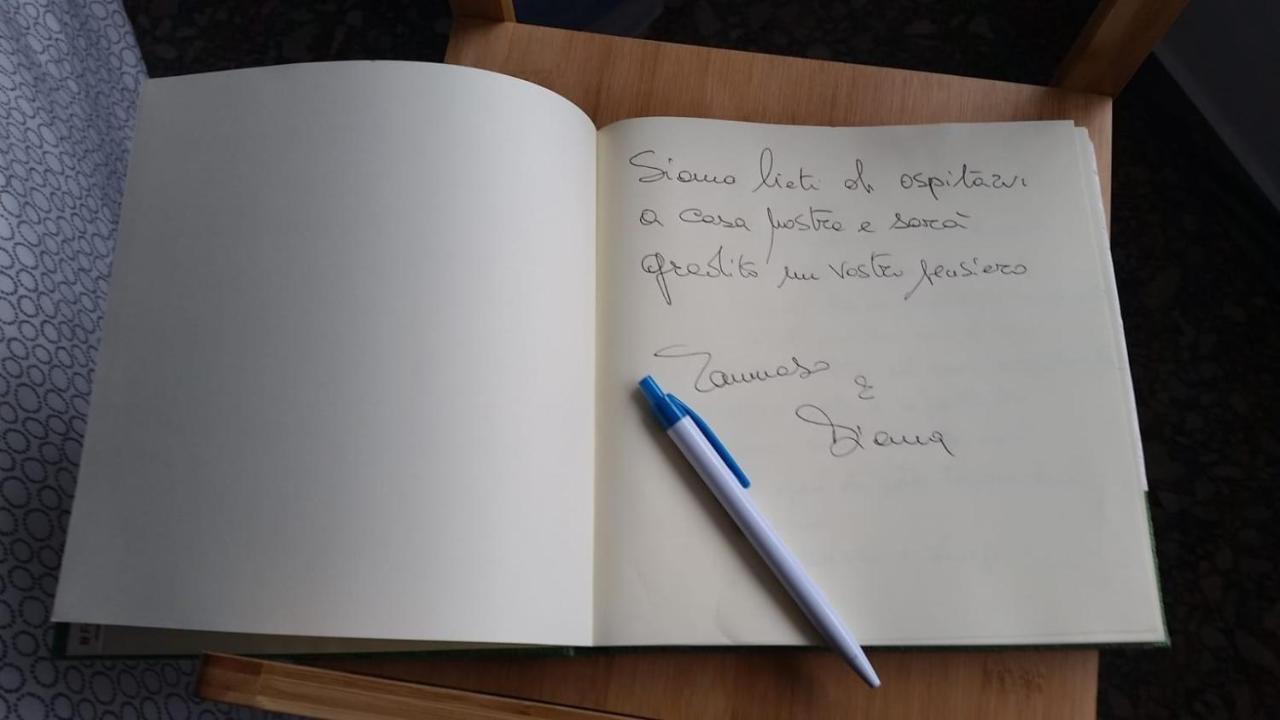 Siamo lieti di ospitarvi
a casa nostra e sarà
gradito un vostro pensiero
Tommaso
e
Diana